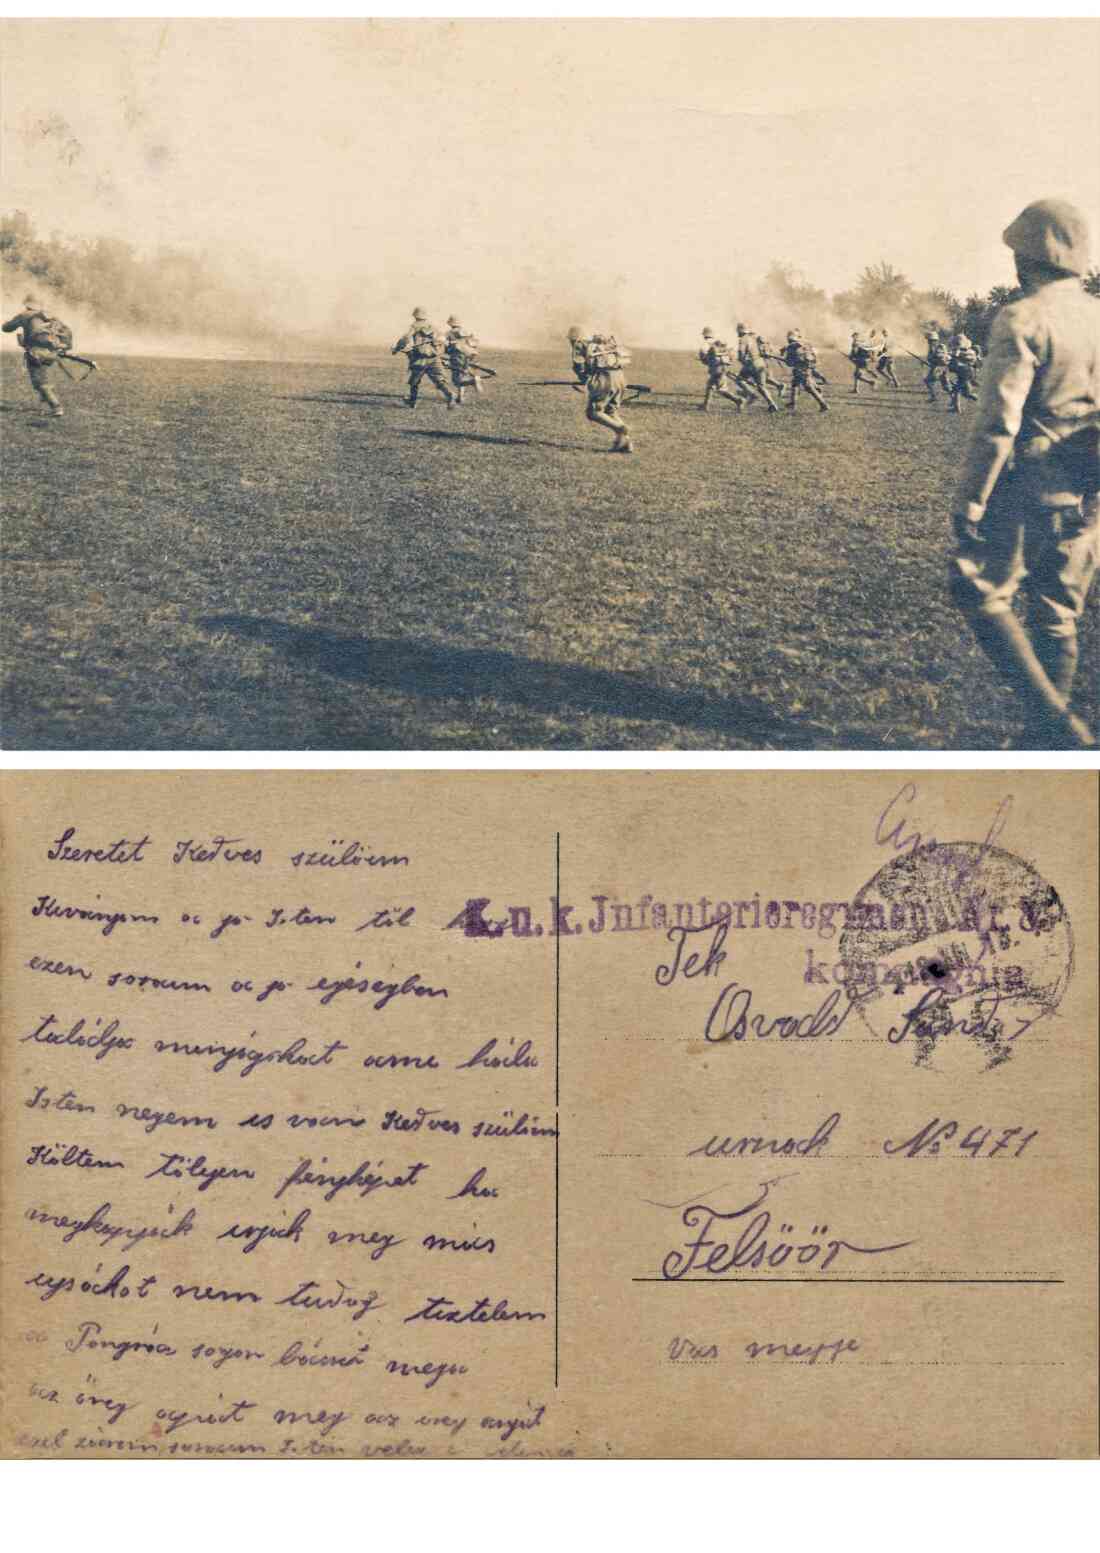 Szeretet Kedves szülöim
Kivánom a jo Isten töl
ezen soraim a jo egéségben
találja menyágokat ame hála
Isten negem is van Kedves szülöim
Költem tölegen fényképet ha
megkapják irják meg más
ujságot nem tudog tisztelem
a Pongrác sogor bácsit mega
az öreg apát meg az öreg anyát
ezel zárom soraim Isten velem
K.u.k. Infanterieregiment Nr. 8
kompagnie
Tek
Osvald
urnack No 471
Felsöör
Vas megye